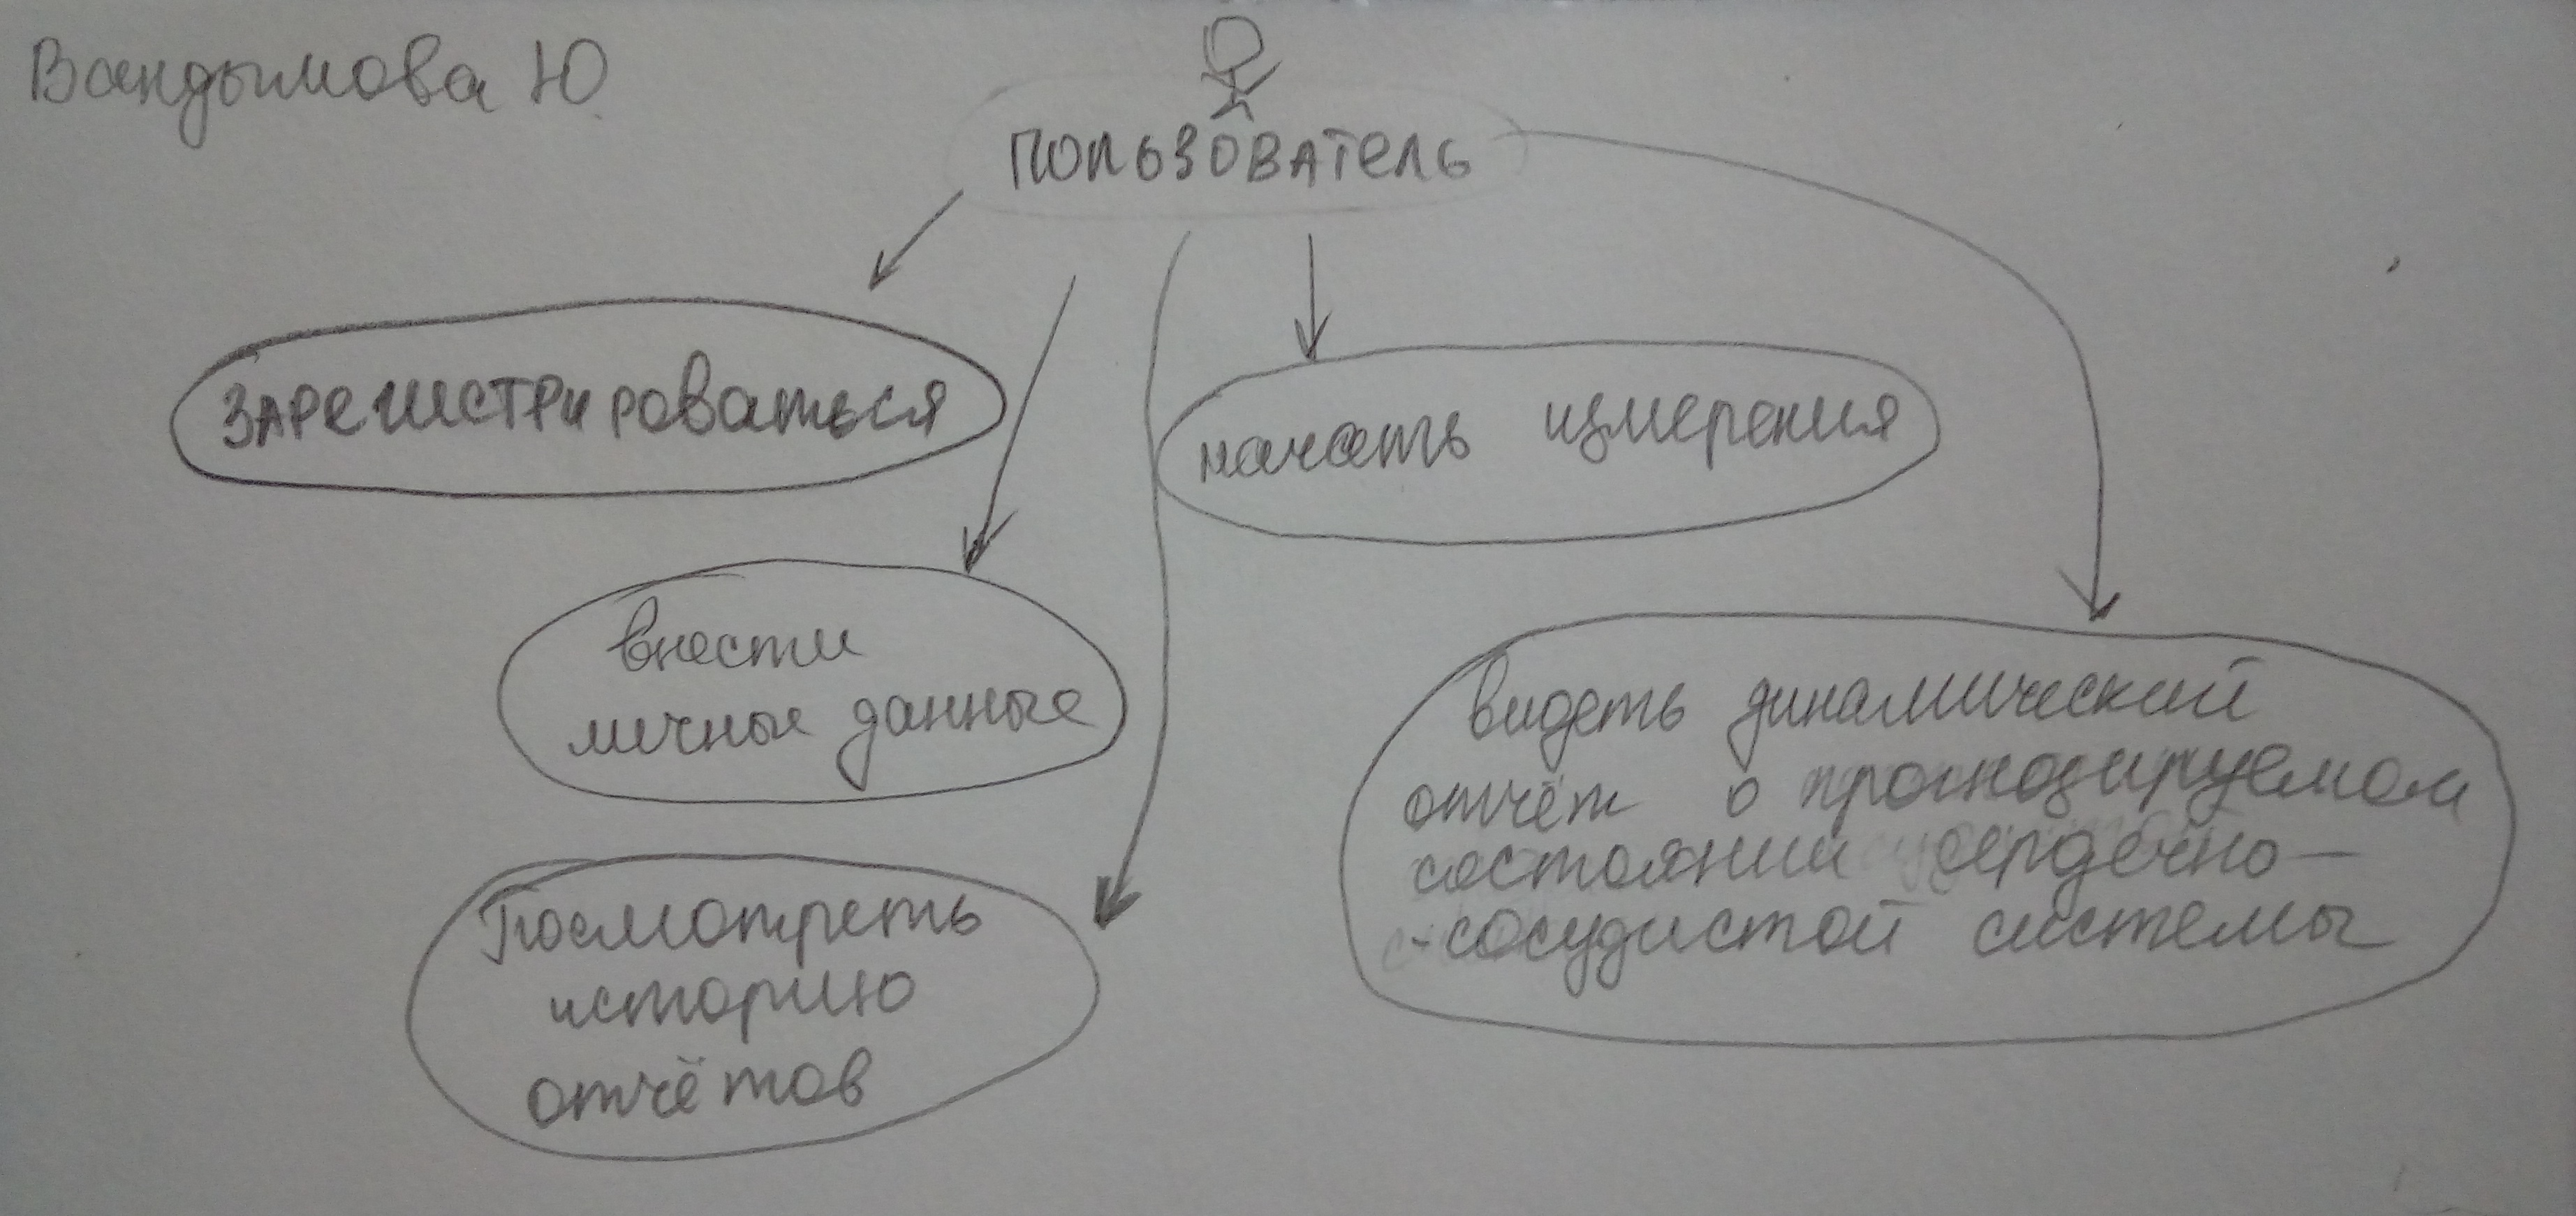 Вандымова Ю
пользователь
зарегистрироваться
начать измерения
внести
личные данные
видеть динамический
отчёт о прогнозируемом
состоянии сердечно-
-сосудистой системы
Посмотреть
историю
отчётов